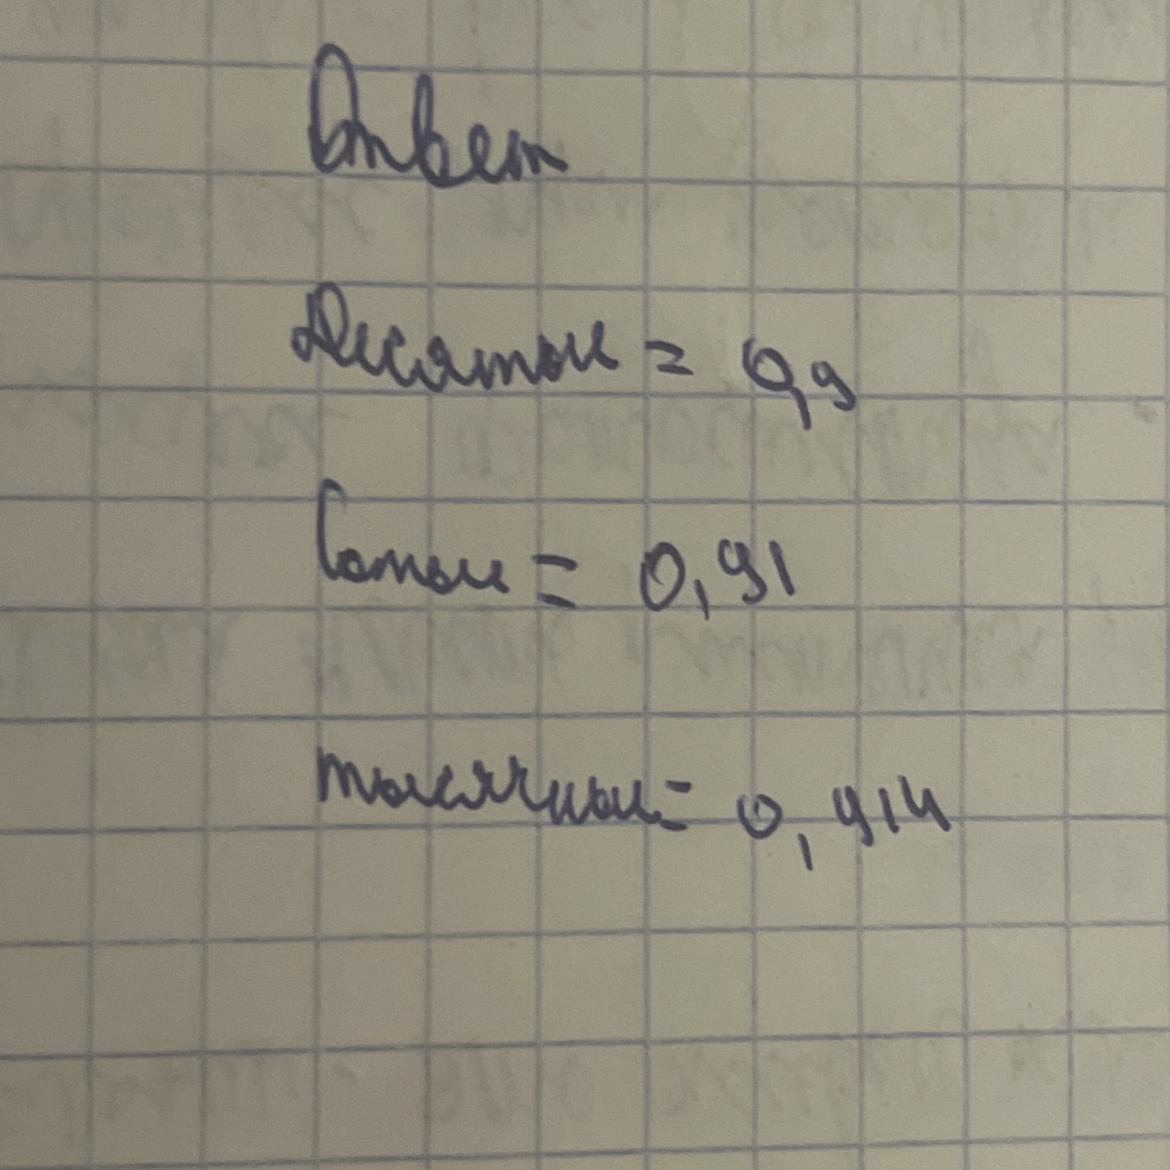 Ответ
Десятой = 0,9
Сотой = 0,91
тысячной = 0,914